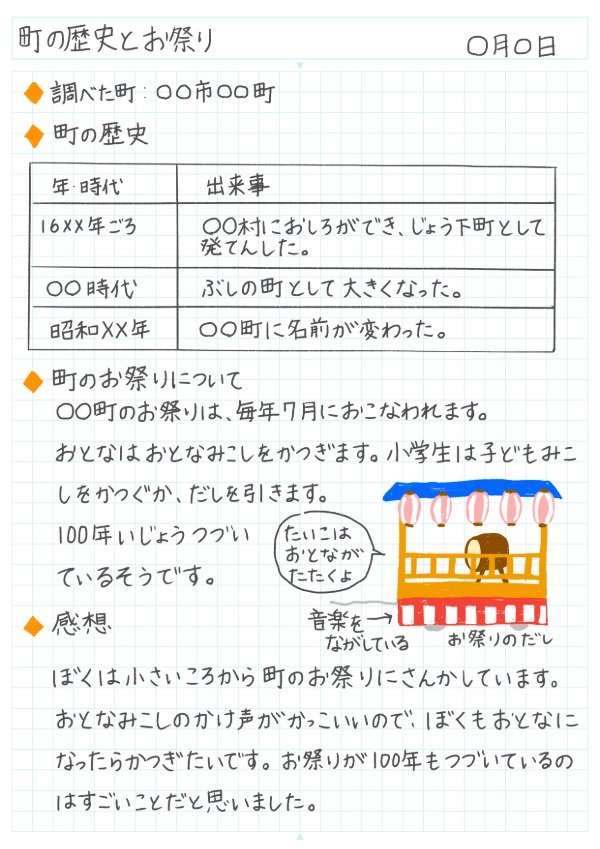 町の歴史とお祭り
〇月〇日
調べた町：〇〇市〇〇町
町の歴史
年・時代 出来事
16××年ごろ 〇〇村におしろができ、じょう下町として
発てんした。
〇〇時代 ぶしの町として大きくなった。
昭和××年 〇〇町に名前が変わった。
町のお祭りについて
〇〇町のお祭りは、毎年7月におこなわれます。
おとなはおとなみこしをかつぎます。小学生は子どもみこ
しをかつぐか、だしを引きます。
100年いじょうつづい
ているそうです。
たいこは
おとなが
たたくよ
音楽を
ながしている
お祭りのだし
感想
ぼくは小さいころから町のお祭りにさんかしています。
おとなみこしのかけ声がかっこいいので、ぼくもおとなに
なったらかつぎたいです。お祭りが100年もつづいているの
はすごいことだと思いました。